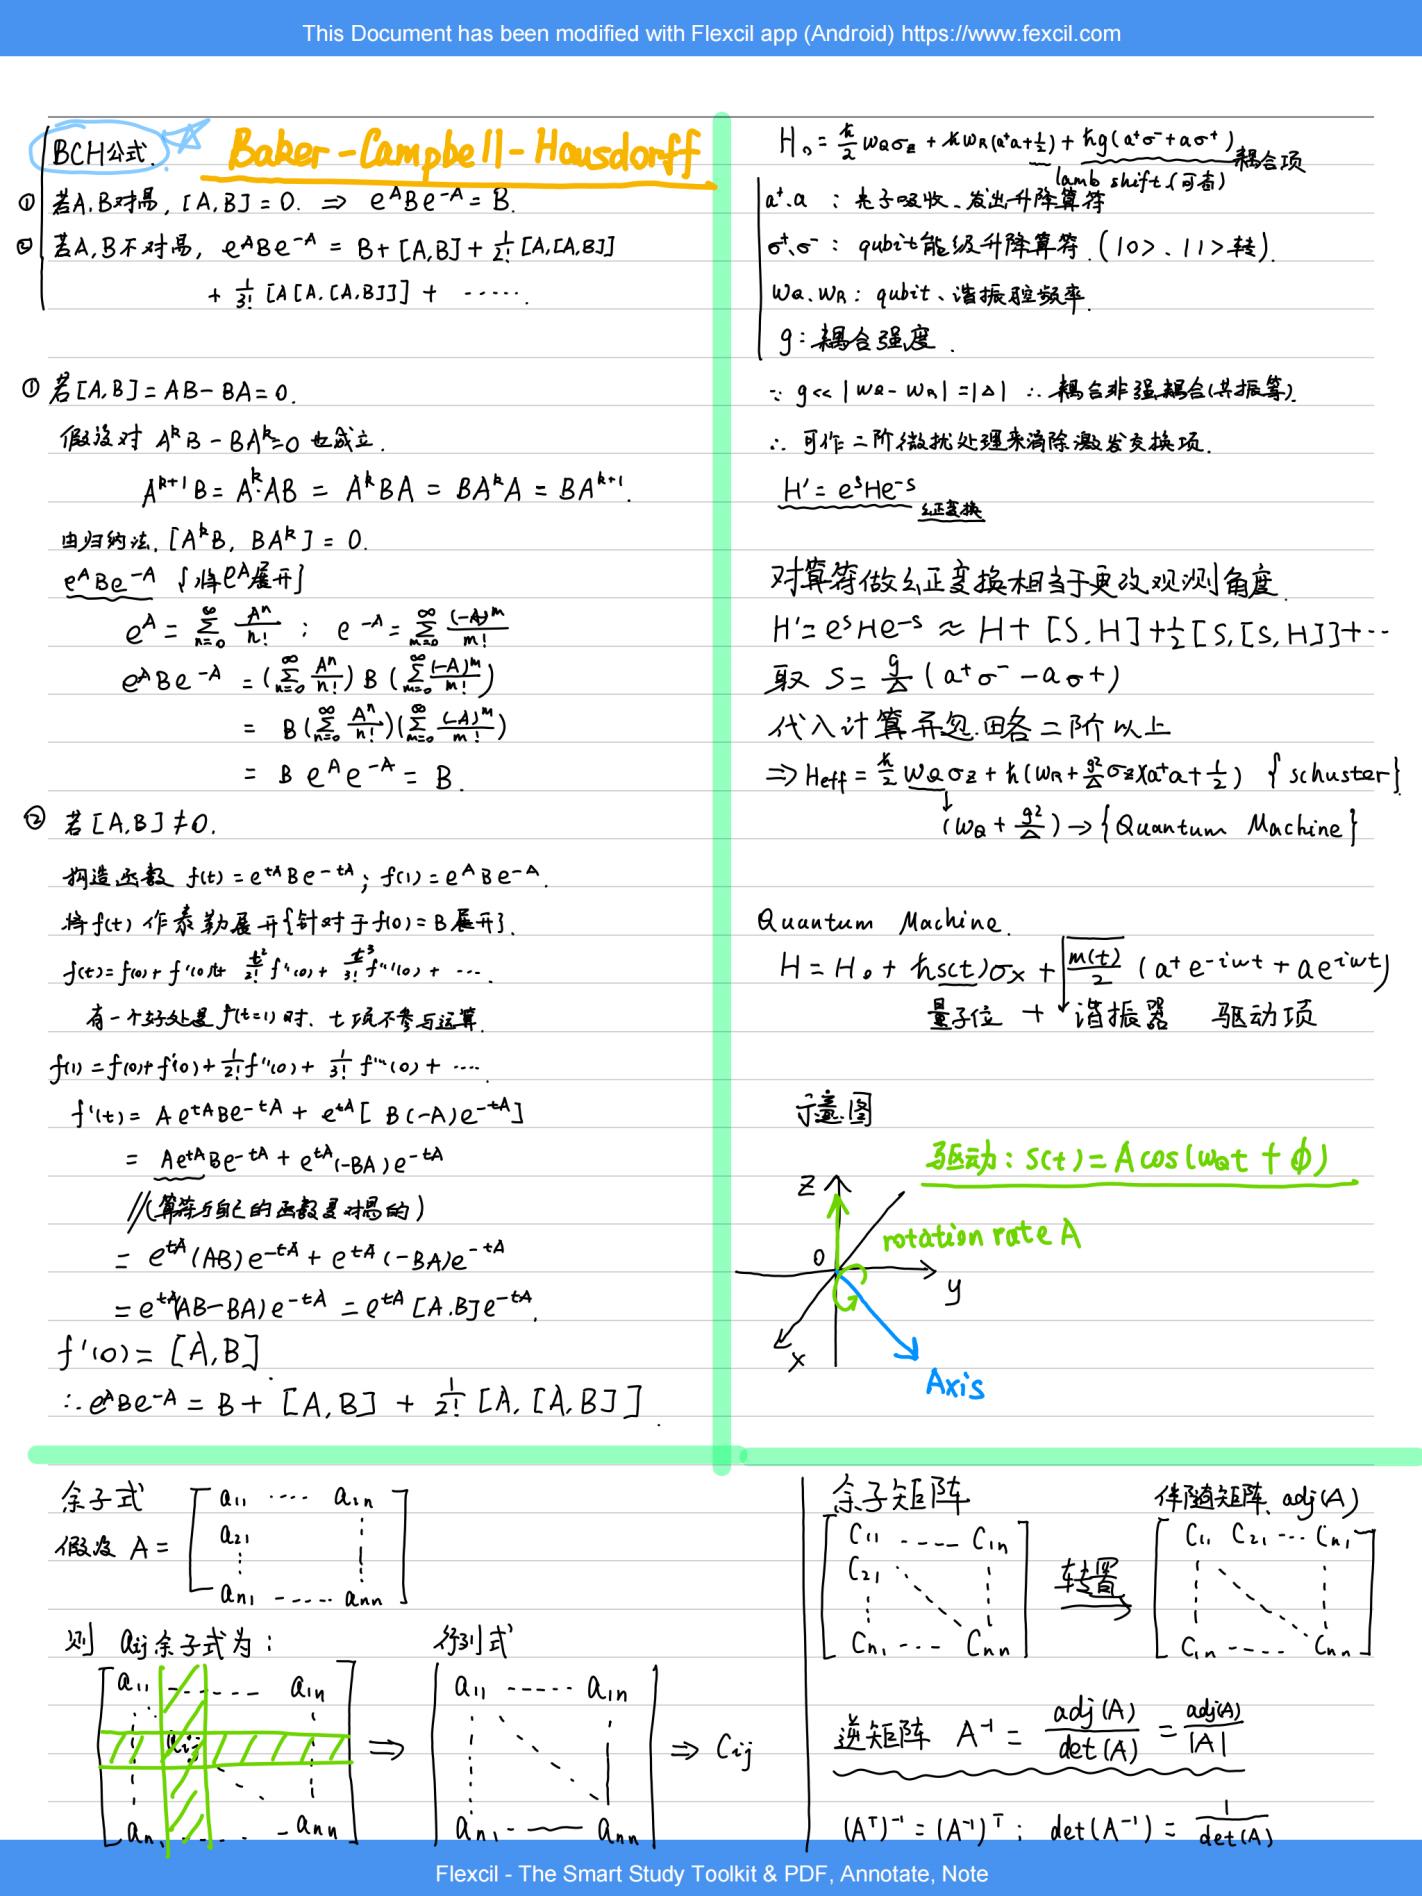 This Document has been modified with Flexcil app (Android) https://www.fexcil.com
BCH公式.
Baker-Campbell-Hausdorff
① 若A,B对易, [A,B]=0. ⇒ e^A B e^-A = B.
② 若A,B不对易, e^A B e^-A = B+[A,B]+1/2! [A,[A,B]]
+ 1/3! [A[A,[A,B]]] + ······.
① 若[A,B]=AB-BA=0.
假设对 A^k B - BA^k=0 也成立.
A^k+1 B = A^k·AB = A^k BA = BA^k A = BA^k+1.
由归纳法, [A^k B, BA^k]=0.
e^A B e^-A {将e^A展开}
e^A = ∑_{n=0}^∞ A^n/n! ; e^-A = ∑_{m=0}^∞ (-A)^m/m!
e^A B e^-A = (∑_{n=0}^∞ A^n/n!) B (∑_{m=0}^∞ (-A)^m/m!)
= B(∑_{n=0}^∞ A^n/n!)(∑_{m=0}^∞ (-A)^m/m!)
= B e^A e^-A = B.
② 若[A,B]≠0.
构造函数 f(t)=e^tA B e^-tA; f(1)=e^A B e^-A.
将f(t)作泰勒展开{针对于f(0)=B展开}.
f(t)=f(0)+f'(0)t+ t^2/2! f''(0)+ t^3/3! f'''(0)+ ···.
有一个好处是f(t=1)时、t项不参与运算.
f(1)=f(0)+f'(0)+1/2! f''(0)+ 1/3! f'''(0)+ ····.
f'(t)= A e^tA B e^-tA + e^tA [ B(-A)e^-tA]
= A e^tA B e^-tA + e^tA (-BA)e^-tA
//(算符与自己的函数是对易的)
= e^tA (AB)e^-tA + e^tA (-BA)e^-tA
= e^tA (AB-BA)e^-tA = e^tA [A,B]e^-tA.
f'(0)= [A,B].
∴ e^A B e^-A = B+ [A,B] + 1/2! [A,[A,B]].
H₀ = ħ/2 ω_Q σ_z + ħω_R(a⁺a+1/2) + ħg(a⁺σ⁻+aσ⁺) 耦合项
lamb shift.(可省)
a⁺、a : 光子吸收、发出升降算符
σ⁺、σ⁻ : qubit能级升降算符.(|0>、|1>转).
ω_Q、ω_R: qubit、谐振腔频率.
g: 耦合强度.
∵ g<<|ω_Q-ω_R|=|Δ| ∴ 耦合非强耦合(共振等).
∴ 可作二阶微扰处理来消除激发交换项.
H'= e^S H e^-S
幺正变换
对算符做幺正变换相当于更改观测角度.
H'=e^S H e^-S ≈ H+ [S,H]+1/2[S,[S,H]]+···
取 S= g/Δ (a⁺σ⁻-aσ⁺)
代入计算并忽略二阶以上
⇒ H_eff = ħ/2 ω_Q σ_z + ħ(ω_R+ g²/Δ σ_z)(a⁺a+1/2) {schuster}.
(ω_Q+ g²/Δ)→{Quantum Machine}
Quantum Machine.
H=H₀+ħs(t)σ_x+√m(t)/2 (a⁺e^-iωt+ae^iωt)
量子位 + 谐振器 驱动项
示意图
驱动: S(t)=Acos(ω_Q t+ϕ)
z
rotation rate A
O
y
x
Axis
余子式
假设 A= [a₁₁ ···· a₁ₙ
a₂₁
aₙ₁ ----- aₙₙ]
则 aᵢⱼ余子式为:
行列式
[a₁₁ ------ a₁ₙ
aᵢⱼ
aₙ₁ ---- aₙₙ] ⇒ |a₁₁ ----- a₁ₙ
aₙ₁ ---- aₙₙ| ⇒ Cᵢⱼ
余子矩阵
[C₁₁ ---- C₁ₙ
C₂₁
Cₙ₁ --- Cₙₙ]
转置
伴随矩阵、adj(A)
[C₁₁ C₂₁ --- Cₙ₁
C₁ₙ ---- Cₙₙ]
逆矩阵 A⁻¹ = adj(A)/det(A) = adj(A)/|A|
(Aᵀ)⁻¹=(A⁻¹)ᵀ; det(A⁻¹)= 1/det(A)
Flexcil - The Smart Study Toolkit & PDF, Annotate, Note